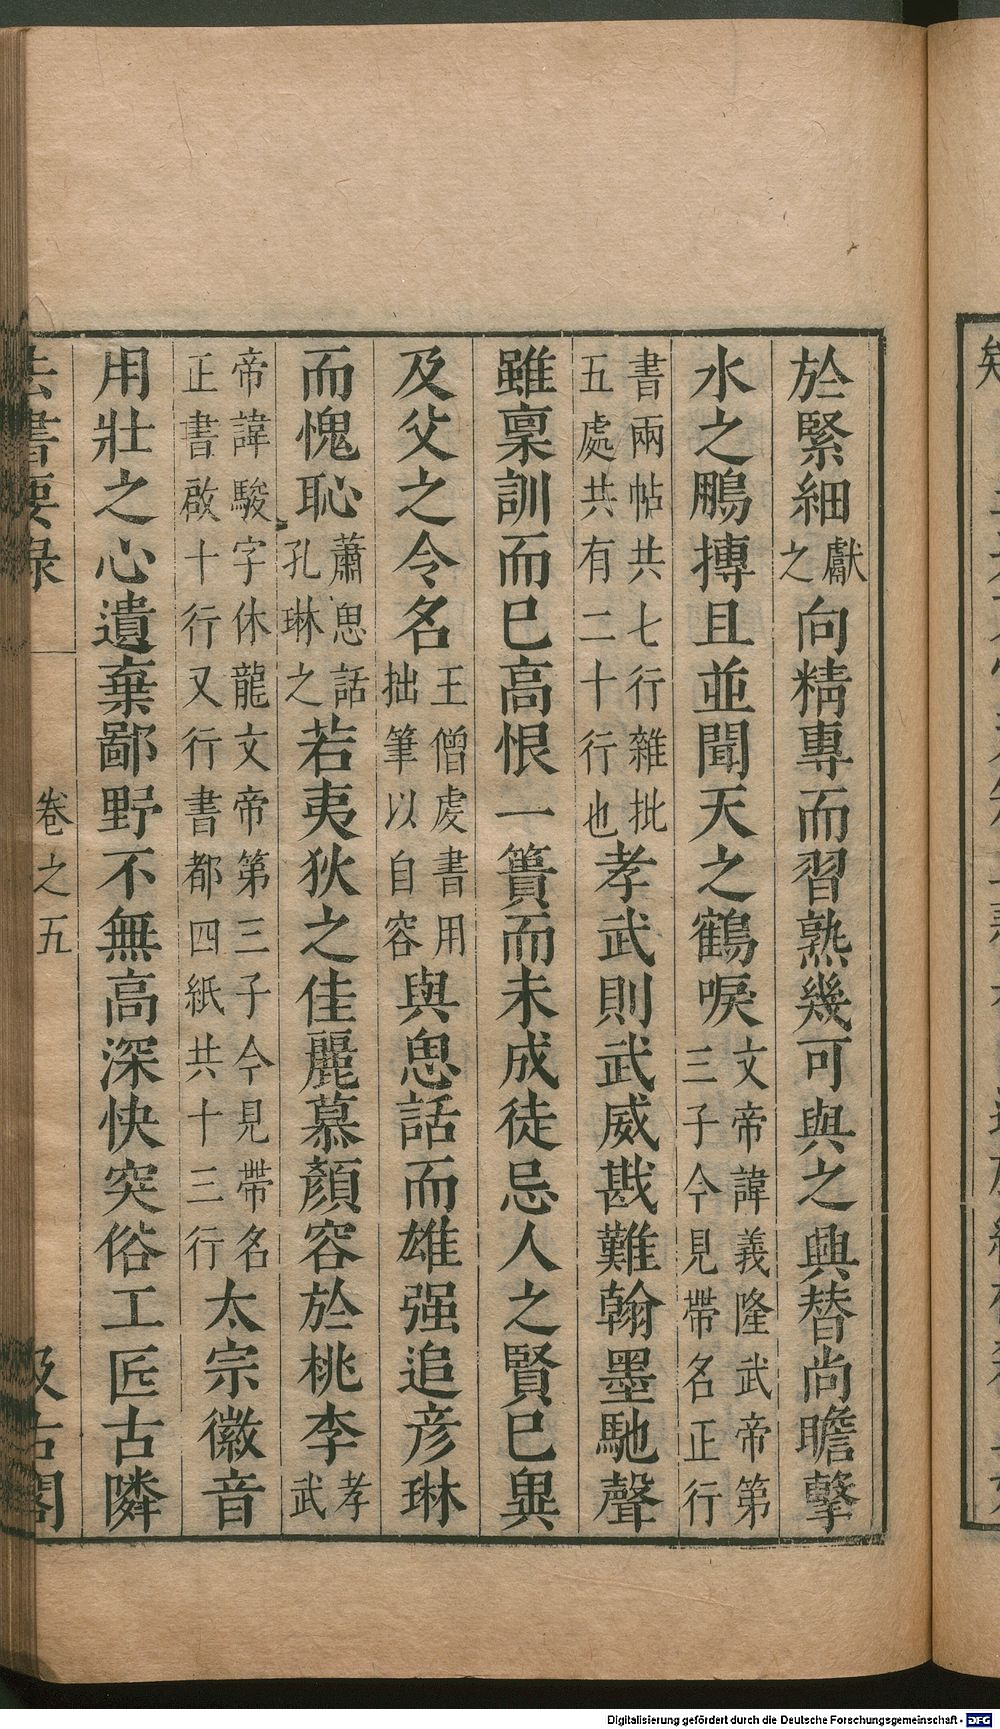 矣
於緊細獻之向精專而習熟幾可與之興替尚瞻擊
水之鵬摶且並聞天之鶴唳文帝諱義隆武帝第三子今見帶名正行
書兩帖共七行雜批五處共有二十行也孝武則武威戡難翰墨馳聲
雖稟訓而巳高恨一簣而未成徒忌人之賢巳兾
及父之令名王僧虔書用拙筆以自容與思話而雄强追彦琳
而愧恥蕭思話孔琳之若夷狄之佳麗慕顏容於桃李孝武
帝諱駿字休龍文帝第三子今見帶名正書啟十行又行書都四紙共十三行太宗徽音
用壯之心遺棄鄙野不無高深快突俗工匠古隣
法書要録 卷之五 汲古閣
Digitalisierung gefördert durch die Deutsche Forschungsgemeinschaft - DFG